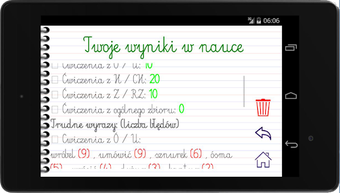 06:06
Twoje wyniki w nauce
Ćwiczenia z U / Ó: 10
Ćwiczenia z H / CH: 20
Ćwiczenia z Z / RZ: 10
Ćwiczenia z ogólnego zbioru: 0
Trudne wyrazy: (liczba błędów)
Ćwiczenia z O / U:
wróbel (9) , umówić (9) , sznurek (6) , ósma
(5)
(4)
(3)
(2)